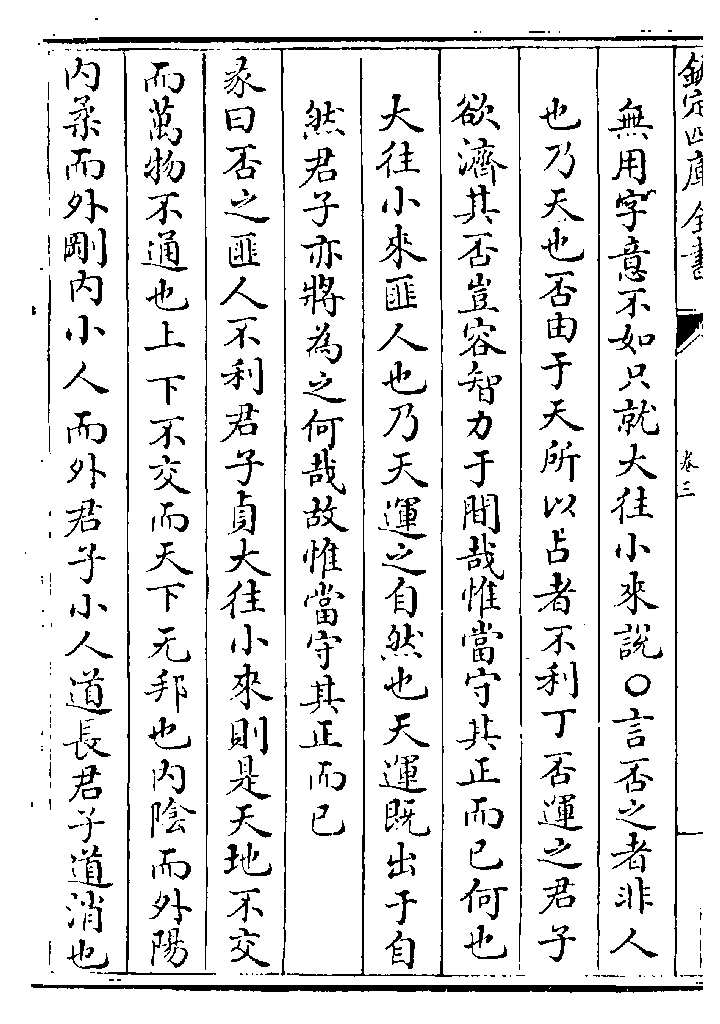 欽定四庫全書
卷三
無用字意不如只就大往小來說○言否之者非人
也乃天也否由于天所以占者不利丁否運之君子
欲濟其否豈容智力于間哉惟當守其正而已何也
大往小來匪人也乃天運之自然也天運既出于自
然君子亦將為之何哉故惟當守其正而已
彖曰否之匪人不利君子貞大往小來則是天地不交
而萬物不通也上下不交而天下无邦也內陰而外陽
內柔而外剛內小人而外君子小人道長君子道消也